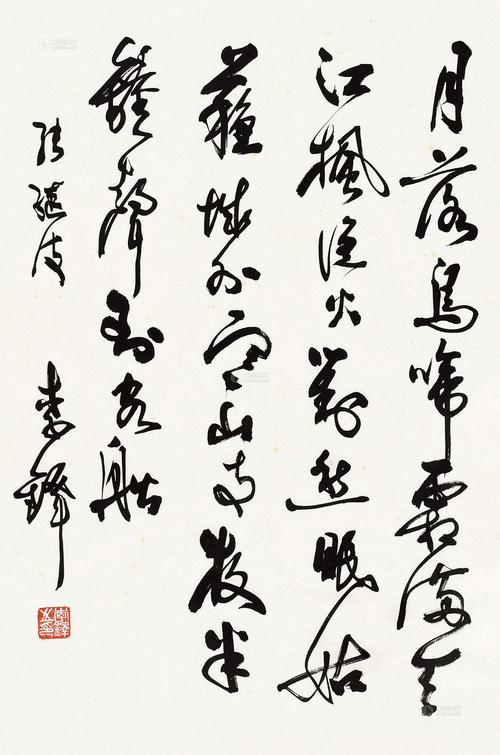 月落烏啼霜滿天
江楓漁火對愁眠姑
蘇城外寒山寺夜半
鐘聲到客船
張繼詩 李鐸